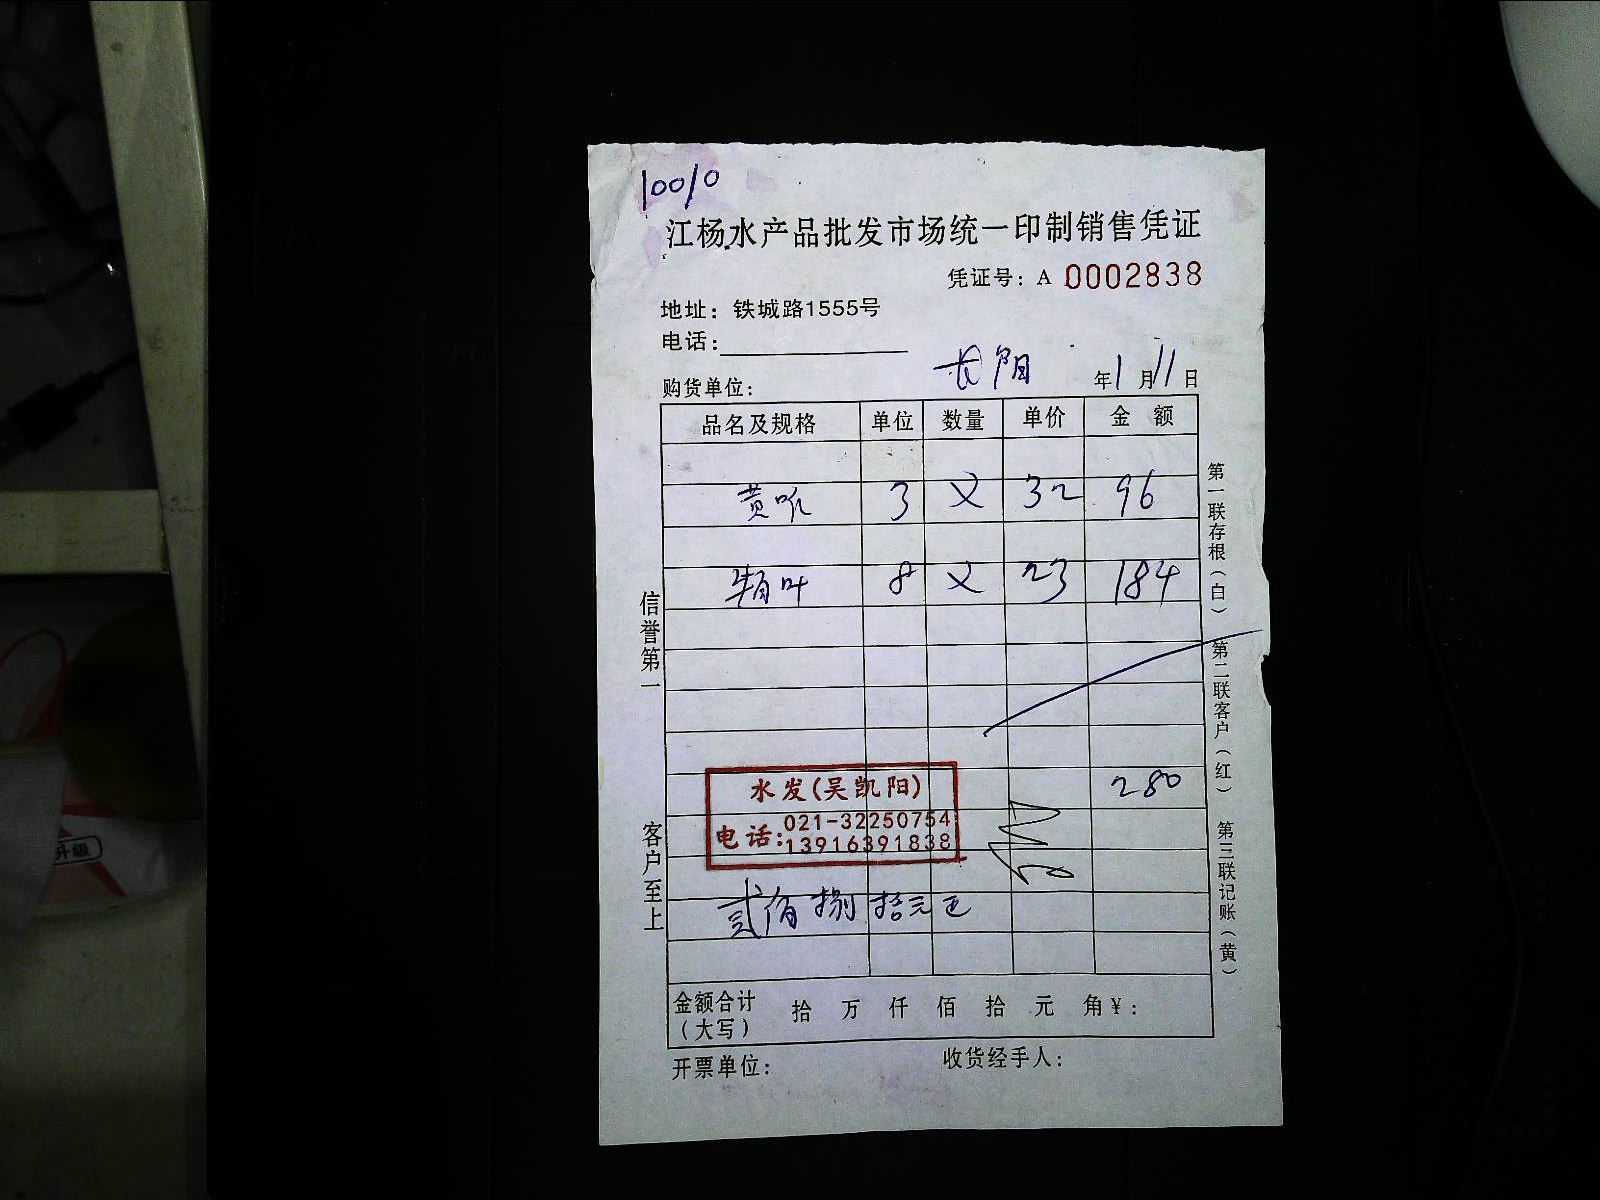 10010
江杨水产品批发市场统一印制销售凭证
凭证号：A 0002838
地址：铁城路1555号
电话：
长阳 年1月11日
购货单位：
品名及规格 单位 数量 单价 金 额
黄 3 又 32 96
8 又 23 184
280
水发(吴凯阳)
电话:021-32250754
13916391838
贰佰捌拾元正
金额合计（大写） 拾 万 仟 佰 拾 元 角 ¥：
开票单位： 收货经手人：
信誉第一
客户至上
第一联存根（白）
第二联客户（红）
第三联记账（黄）
升級